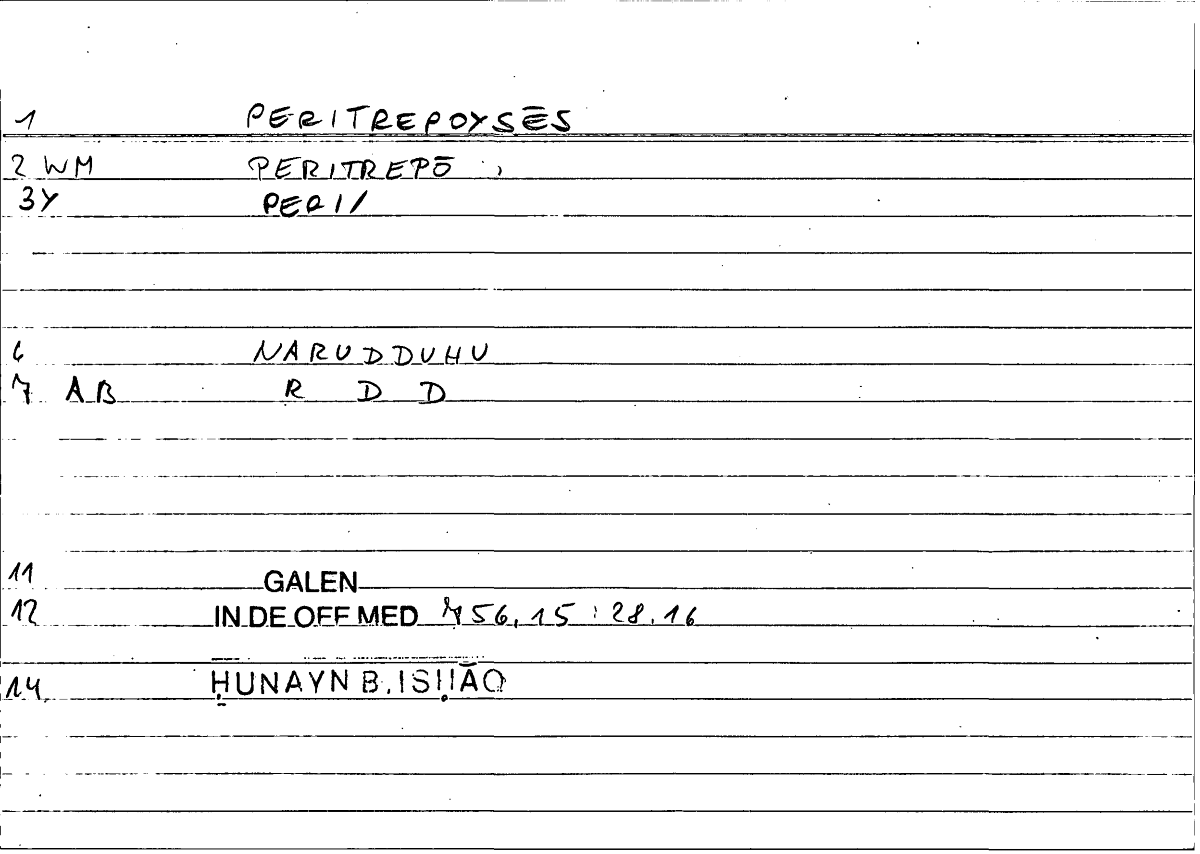 1 PERITREPOYSĒS
2 WM PERITREPŌ
3Y PERI/
6 NARUDDUHU
7 AB R D D
11 GALEN
12 IN DE OFF MED 756,15 : 28.16
14 ḤUNAYN B. ISḤĀQ